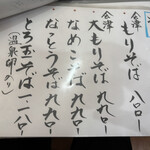 会津 もりそば 八〇〇ー
会津 大もりそば 九九〇ー
なめこそば 九九〇ー
なっとうそば 九九〇ー
とろ玉そば 一一八〇ー
(温泉卵入り)